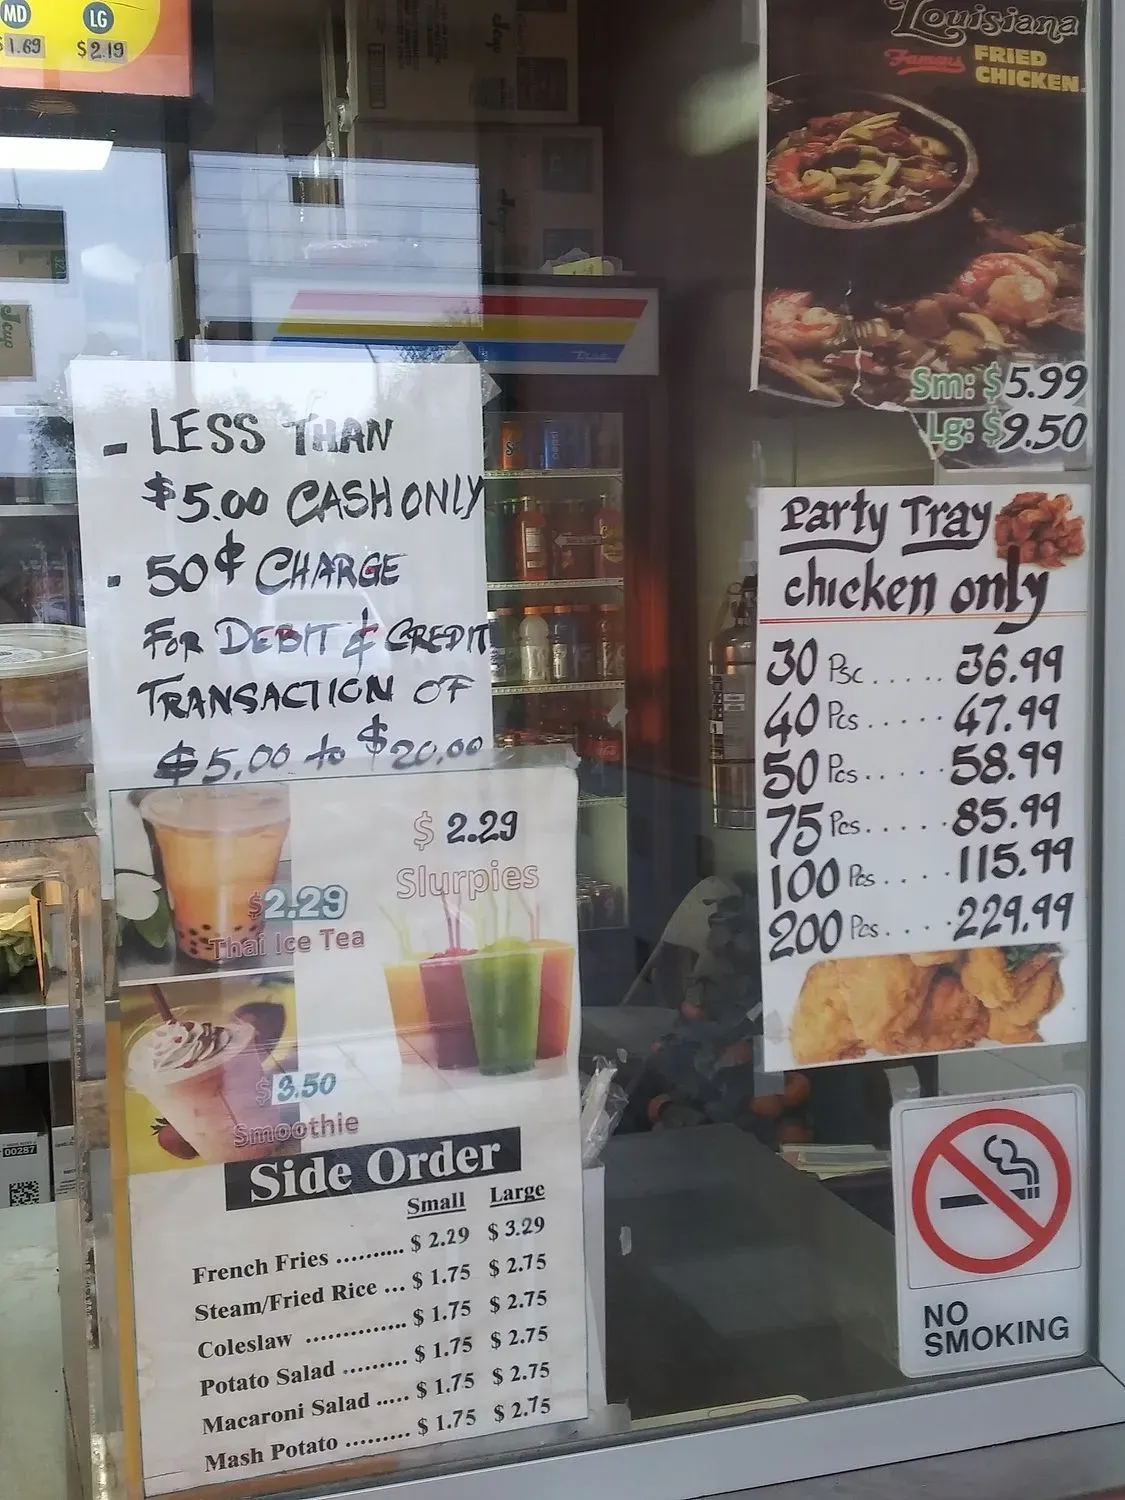 MD LG
$1.69 $2.19
Louisiana
Famous FRIED
CHICKEN
Sm: $5.99
Lg: $9.50
- LESS THAN
$5.00 CASH ONLY
- 50¢ CHARGE
FOR DEBIT & CREDIT
TRANSACTION OF
$5.00 to $20.00
$ 2.29
Slurpies
$2.29
Thai Ice Tea
$3.50
Smoothie
Side Order
Small Large
French Fries .......... $ 2.29 $ 3.29
Steam/Fried Rice ... $ 1.75 $ 2.75
Coleslaw .............. $ 1.75 $ 2.75
Potato Salad ......... $ 1.75 $ 2.75
Macaroni Salad ..... $ 1.75 $ 2.75
Mash Potato ......... $ 1.75 $ 2.75
Party Tray
chicken only
30 Psc ..... 36.99
40 Pcs ..... 47.99
50 Pcs ..... 58.99
75 Pcs ..... 85.99
100 Pcs .... 115.99
200 Pcs .... 229.99
NO
SMOKING
00287